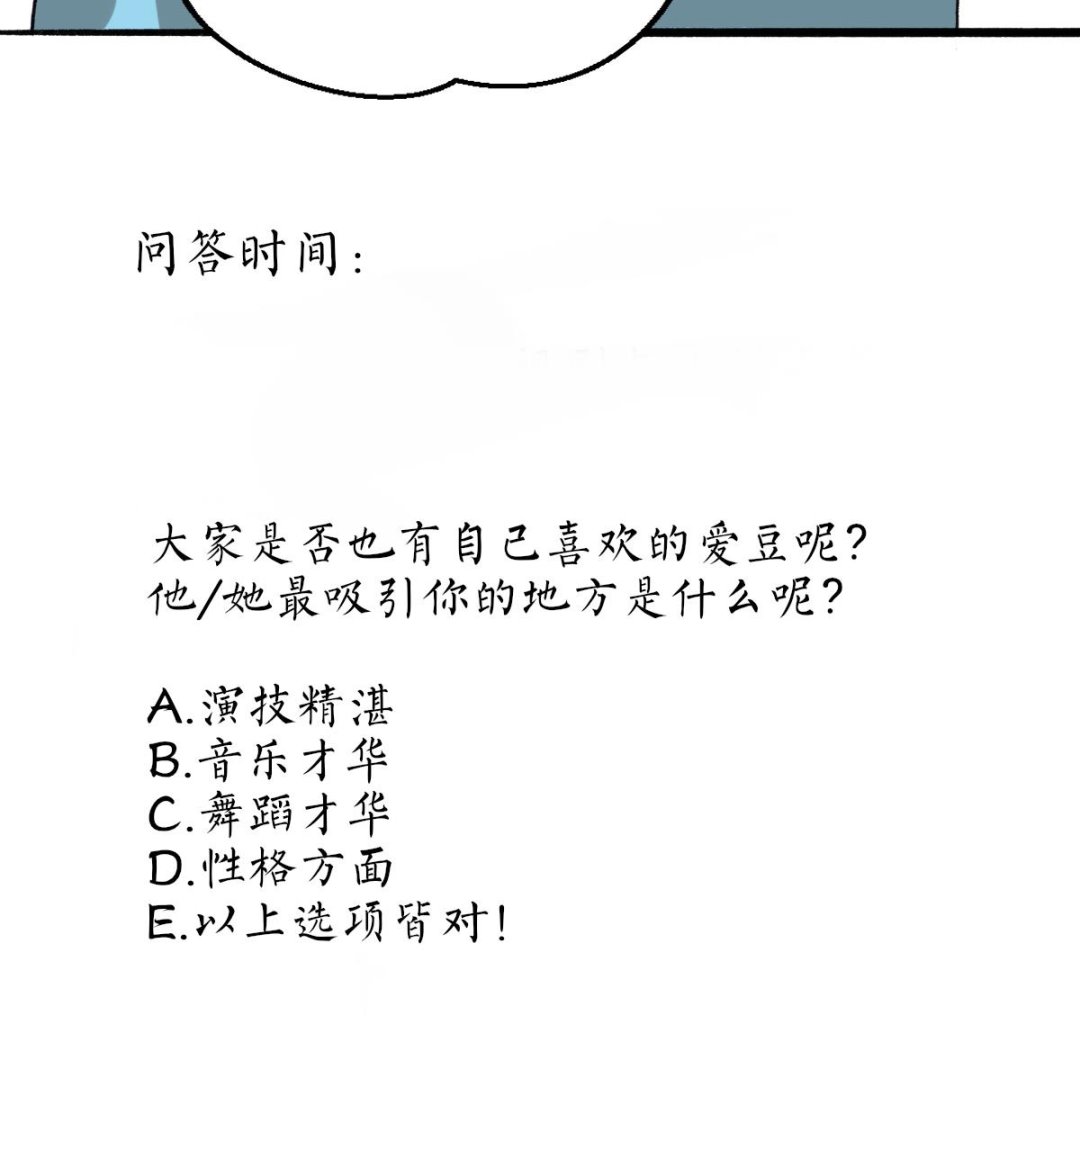 问答时间：
大家是否也有自己喜欢的爱豆呢？
他/她最吸引你的地方是什么呢？
A.演技精湛
B.音乐才华
C.舞蹈才华
D.性格方面
E.以上选项皆对！